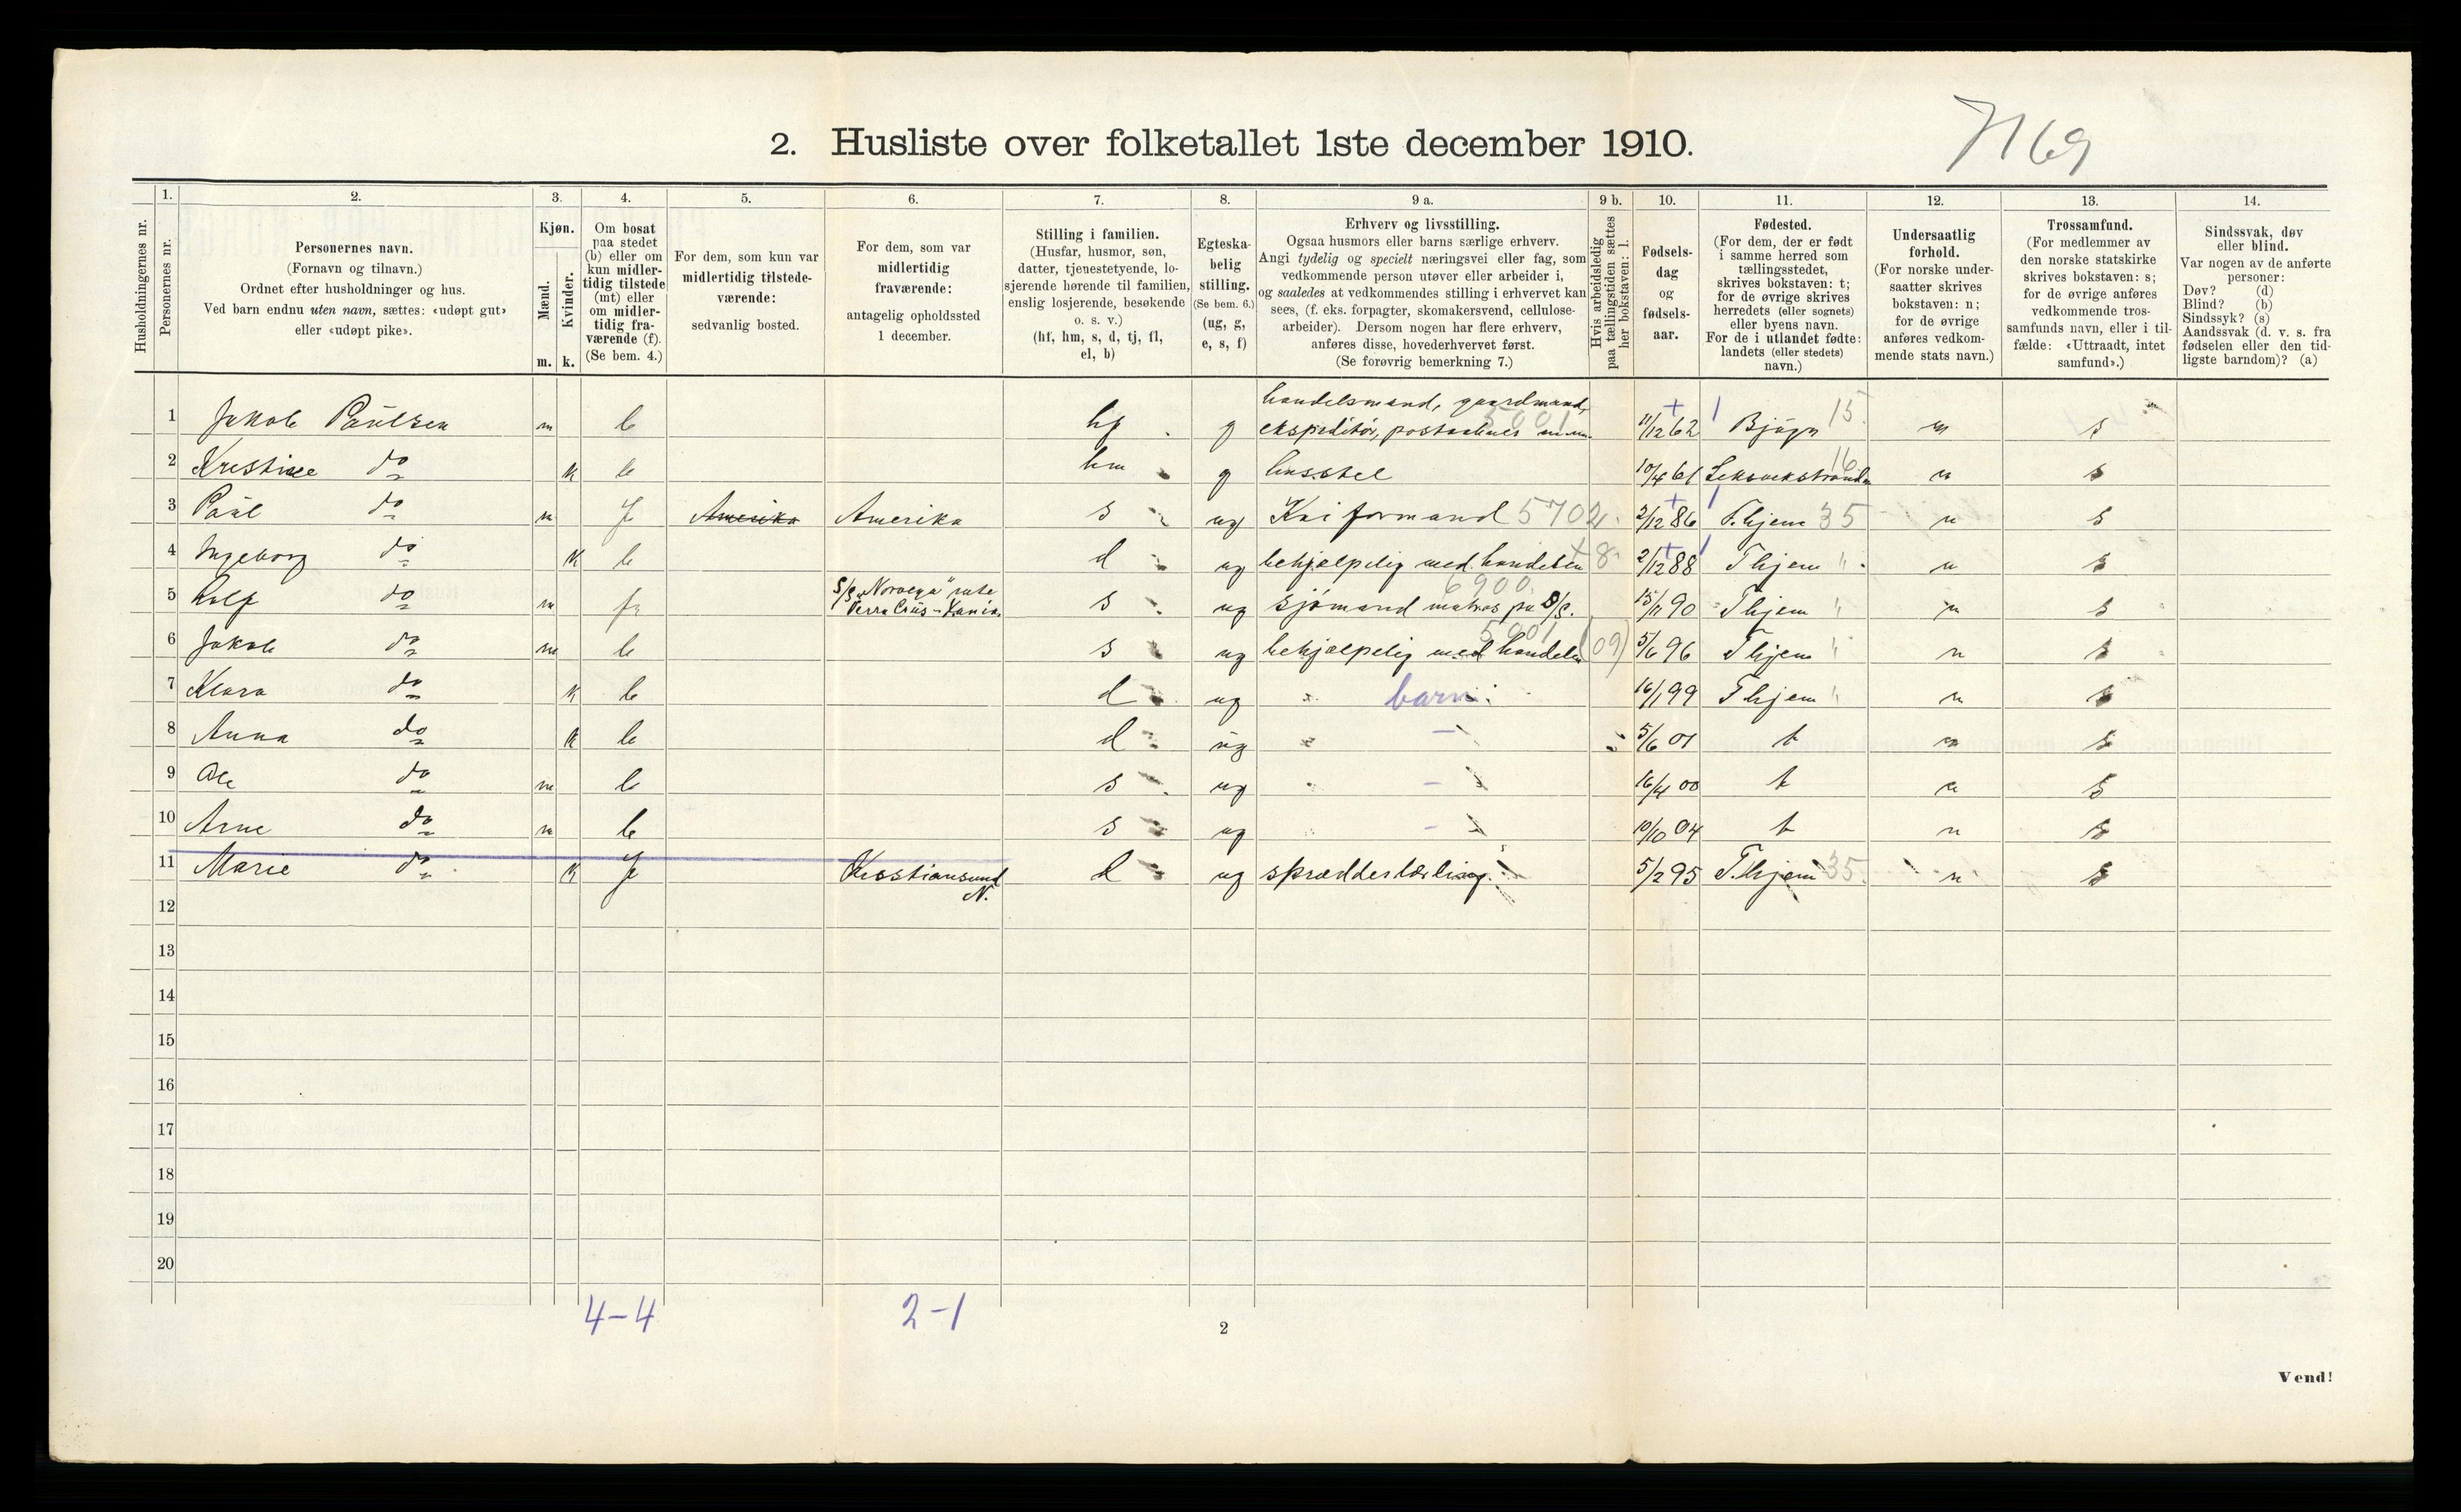 2. Husliste over folketallet 1ste december 1910.
7169
Husholdningernes nr.
1. Personernes nr.
2. Personernes navn. (Fornavn og tilnavn.) Ordnet efter husholdninger og hus. Ved barn endnu uten navn, sættes: «udøpt gut» eller «udøpt pike».
3. Kjøn. Mænd. m. Kvinder. k.
4. Om bosat paa stedet (b) eller om kun midlertidig tilstede (mt) eller om midlertidig fraværende (f). (Se bem. 4.)
5. For dem, som kun var midlertidig tilstedeværende: sedvanlig bosted.
6. For dem, som var midlertidig fraværende: antagelig opholdssted 1 december.
7. Stilling i familien. (Husfar, husmor, søn, datter, tjenestetyende, losjerende hørende til familien, enslig losjerende, besøkende o. s. v.) (hf, hm, s, d, tj, fl, el, b)
8. Egteskabelig stilling. (Se bem. 6.) (ug, g, e, s, f)
9 a. Erhverv og livsstilling. Ogsaa husmors eller barns særlige erhverv. Angi tydelig og specielt næringsvei eller fag, som vedkommende person utøver eller arbeider i, og saaledes at vedkommendes stilling i erhvervet kan sees, (f. eks. forpagter, skomakersvend, cellulosearbeider). Dersom nogen har flere erhverv, anføres disse, hovederhvervet først. (Se forøvrig bemerkning 7.)
9 b. Hvis arbeidsledig paa tællingstiden sættes her bokstaven: l.
10. Fødselsdag og fødselsaar.
11. Fødested. (For dem, der er født i samme herred som tællingsstedet, skrives bokstaven: t; for de øvrige skrives herredets (eller sognets) eller byens navn. For de i utlandet fødte: landets (eller stedets) navn.)
12. Undersaatlig forhold. (For norske undersaatter skrives bokstaven: n; for de øvrige anføres vedkommende stats navn.)
13. Trossamfund. (For medlemmer av den norske statskirke skrives bokstaven: s; for de øvrige anføres vedkommende trossamfunds navn, eller i tilfælde: «Uttraadt, intet samfund».)
14. Sindssvak, døv eller blind. Var nogen av de anførte personer: Døv? (d) Blind? (b) Sindssyk? (s) Aandssvak (d. v. s. fra fødselen eller den tidligste barndom)? (a)
1 Jakob Paulsen m b hf g handelsmand, gaardmand, ekspeditör, postaabner m.m. 5001 11/12 62 Bjugn 15 n s
2 Kristine do k b hm g husstel 10/4 61 Leksvikstranden 16 n s
3 Paul do m f Amerika Amerika s ug Kaiformand 5702 2/12 86 T.hjem 35 n s
4 Ingeborg do k b d ug behjælpelig med handelen 8 2/12 88 T hjem " n s
5 Rolf do m f S/S "Norvega" rute s ug sjömand matros paa S/S. 6900 15/11 90 T hjem " n s
6 Jakob do m b s ug behjælpelig med handelen 5001 (09) 5/6 96 T hjem " n s
7 Klara do k b d ug barn 16/1 99 T hjem " n s
8 Anna do k b d ug - 5/6 01 t n s
9 Ole do m b s ug - 16/4 00 t n s
10 Arne do m b s ug - 10/10 04 t n s
11 Marie do k f Kristiansund N. d ug skrædderlærling 5/2 95 T.hjem 35 n s
12
13
14
15
16
17
18
19
20
4-4
2-1
2
Vend!